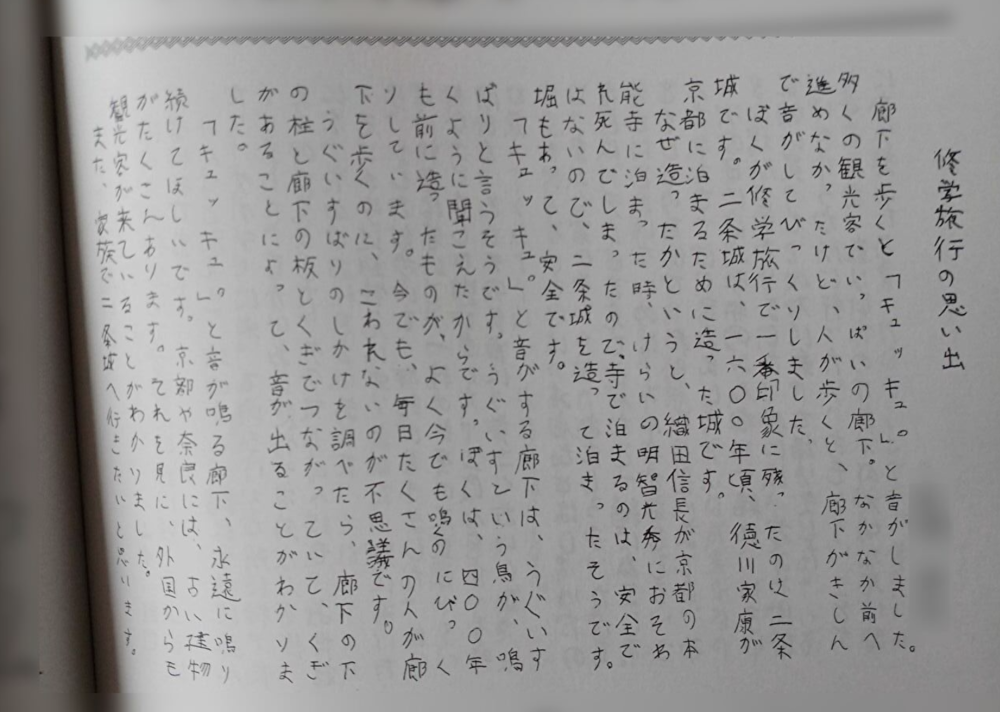 修学旅行の思い出
廊下を歩くと「キュッキュ。」と音がしました。
多くの観光客でいっぱいの廊下。なかなか前へ
進めなかったけど、人が歩くと、廊下がきしん
で音がしてびっくりしました。
ぼくが修学旅行で一番印象に残ったのは二条
城です。二条城は、一六〇〇年頃、徳川家康が
京都に泊まるために造った城です。
なぜ造ったかというと、織田信長が京都の本
能寺に泊まった時、けらいの明智光秀におそわ
れ死んでしまったので、寺で泊まるのは、安全で
はないので、二条城を造って泊まったそうです。
堀もあって、安全です。
「キュッキュ。」と音がする廊下は、うぐいす
ばりと言うそうです。うぐいすという鳥が、鳴
くように聞こえたからです。ぼくは、四〇〇年
も前に造ったものが、よく今でも鳴くのにびっく
りしています。今でも、毎日たくさんの人が廊
下を歩くのに、こわれないのが不思議です。
うぐいすばりのしかけを調べたら、廊下の下
の柱と廊下の板とくぎでつながっていて、くぎ
があることによって、音が出ることがわかりま
した。
「キュッキュ。」と音が鳴る廊下、永遠に鳴り
続けてほしいです。京都や奈良には、古い建物
がたくさんあります。それを見に、外国からも
観光客が来ていることがわかりました。
また、家族で二条城へ行きたいと思います。